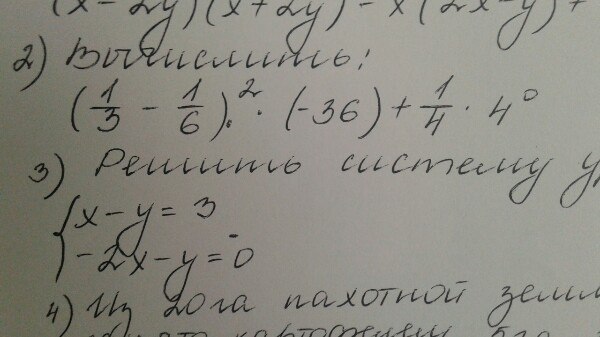 (x-2y)(x+2y)-x(2x-y)+
2) Вычислить:
(1/3 - 1/6)² · (-36) + 1/4 · 4⁰
3) Решить систему у
{x-y=3
-2x-y=0
4) Из 20га пахотной земл
картофелем